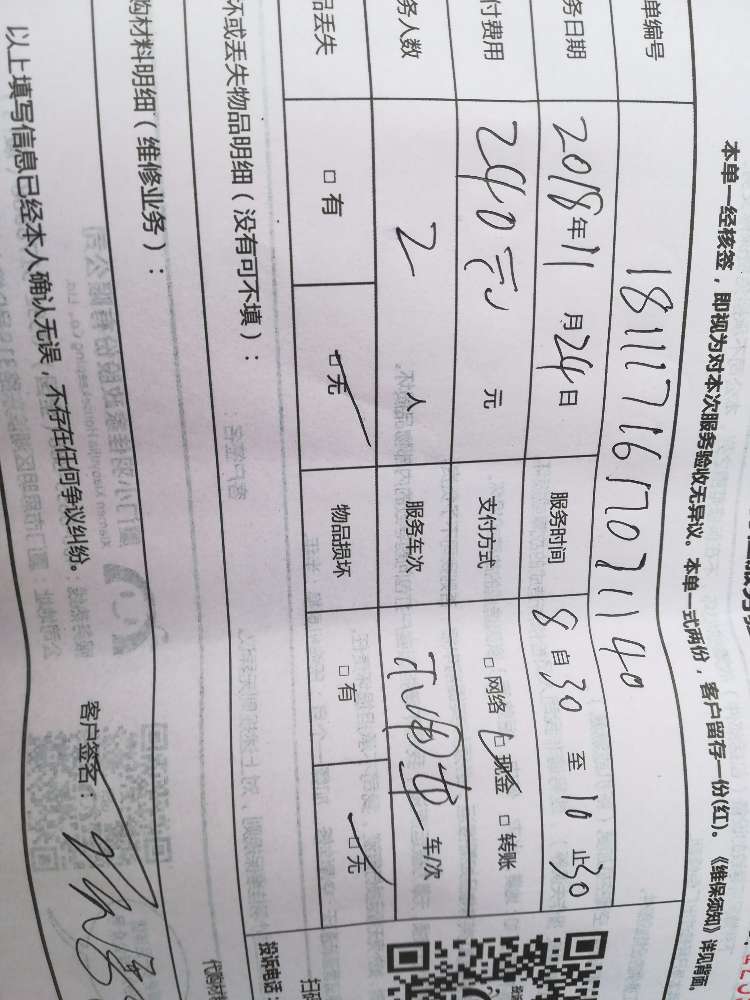 本单一经核签，即视为对本次服务验收无异议。本单一式两份，客户留存一份(红)。《维保须知》详见背面
单编号 18111716170371140
务日期 2018年11月24日 服务时间 8自30至10止30
付费用 240元 元 支付方式 □网络 □现金 □转账
务人数 2 人 服务车次 车/次
品丢失 □有 □无 物品损坏 □有 □无
坏或丢失物品明细（没有可不填）：
购材料明细（维修业务）：
以上填写信息已经本人确认无误，不存在任何争议纠纷。 客户签名：
投诉电话：